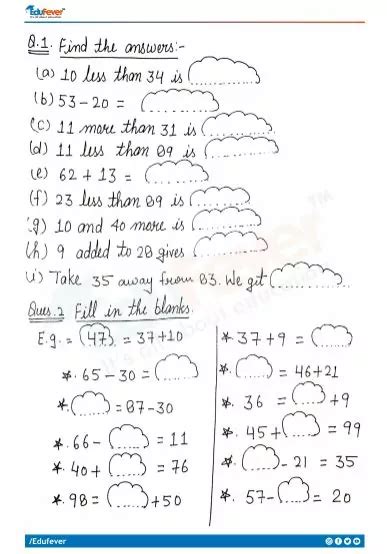 EduFever
It's all about education
Q.1. Find the answers:-
(a) 10 less than 34 is
(b) 53-20 =
(c) 11 more than 31 is
(d) 11 less than 89 is
(e) 62 + 13 =
(f) 23 less than 89 is
(g) 10 and 40 more is
(h) 9 added to 28 gives
(i) Take 35 away from 83. We get
Ques.2 Fill in the blanks.
E.g. = 47 = 37+10
*. 65 - 30 =
*. = 87-30
*. 66- = 11
*. 40+ = 76
*. 98= +50
*. 37+9 =
*. = 46+21
*. 36 = +9
*. 45+ = 99
*. - 21 = 35
*. 57- = 20
/Edufever